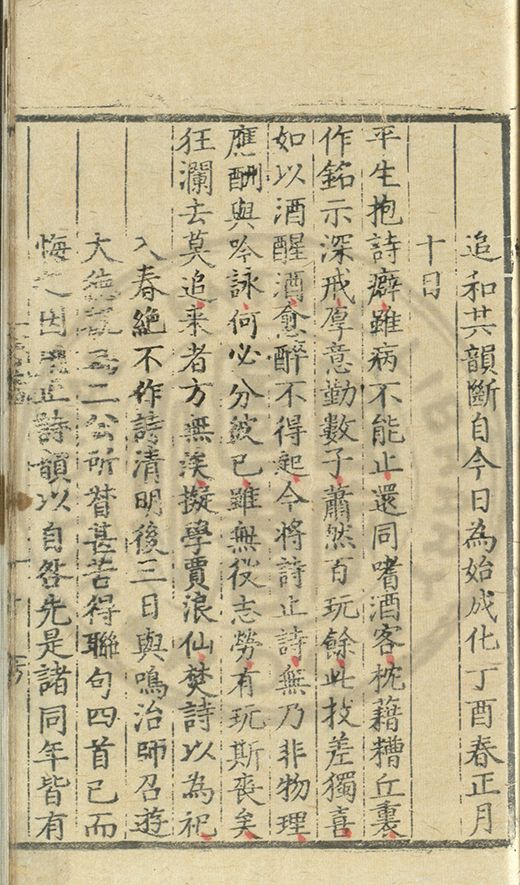 追和其韻斷自今日為始成化丁酉春正月
十日
平生抱詩癖雖病不能止還同嗜酒客枕藉糟丘裏
作銘示深戒厚意勤數子蕭然百玩餘此技差獨喜
如以酒醒酒愈醉不得起今將詩止詩無乃非物理
應酬與吟詠何必分彼已雖無役志勞有玩斯喪矣
狂瀾去莫追来者方無涘擬學賈浪仙焚詩以為祀
入春絶不作詩清明後三日與鳴治師召遊
大徳觀為二公所督甚苦得聯句四首已而
悔之因用止詩韻以自咎先是諸同年皆有